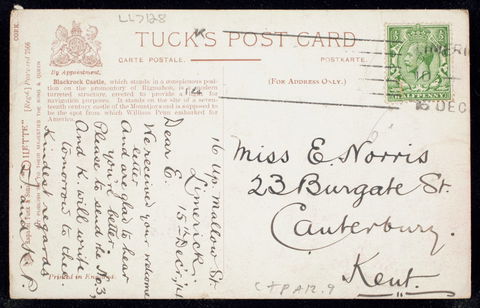 LL7128
TUCK'S POST CARD
CARTE POSTALE.
POSTKARTE.
(FOR ADDRESS ONLY.)
By Appointment.
Blackrock Castle, which stands in a conspicuous position
on the promontory of Rigmahon, is a modern
turreted structure, erected to provide a
for
navigation purposes. It stands on the site of a seventeenth
century castle of the Mountjoys and is supposed to
be the spot from which William Penn embarked for
America.
CORK.
Postcard 7566
TO THEIR MAJESTIES THE KING & QUEEN
Printed in
16 Up. Mallow St.
Limerick
15th Decr. /14
Dear E.
We received your welcome
letter
And are glad to hear
you're better.
Please to send the No. 3,
And K. will write
tomorrow to thee
Kindest regards
Miss E. Norris
23 Burgate St.
Canterbury.
Kent.
DEC
14